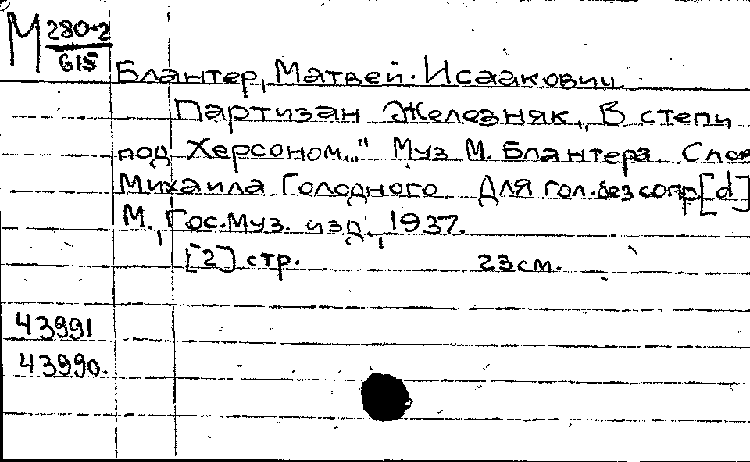 М 280-2
615
Блантер, Матвей Исаакович
Партизан Железняк. „В степи
под Херсоном..." Муз М. Блантера. Слов
Михаила Голодного Для гол. без сопр [d]
М., Гос. Муз. изд., 1937.
[2] стр. 23 см.
43991
43990.